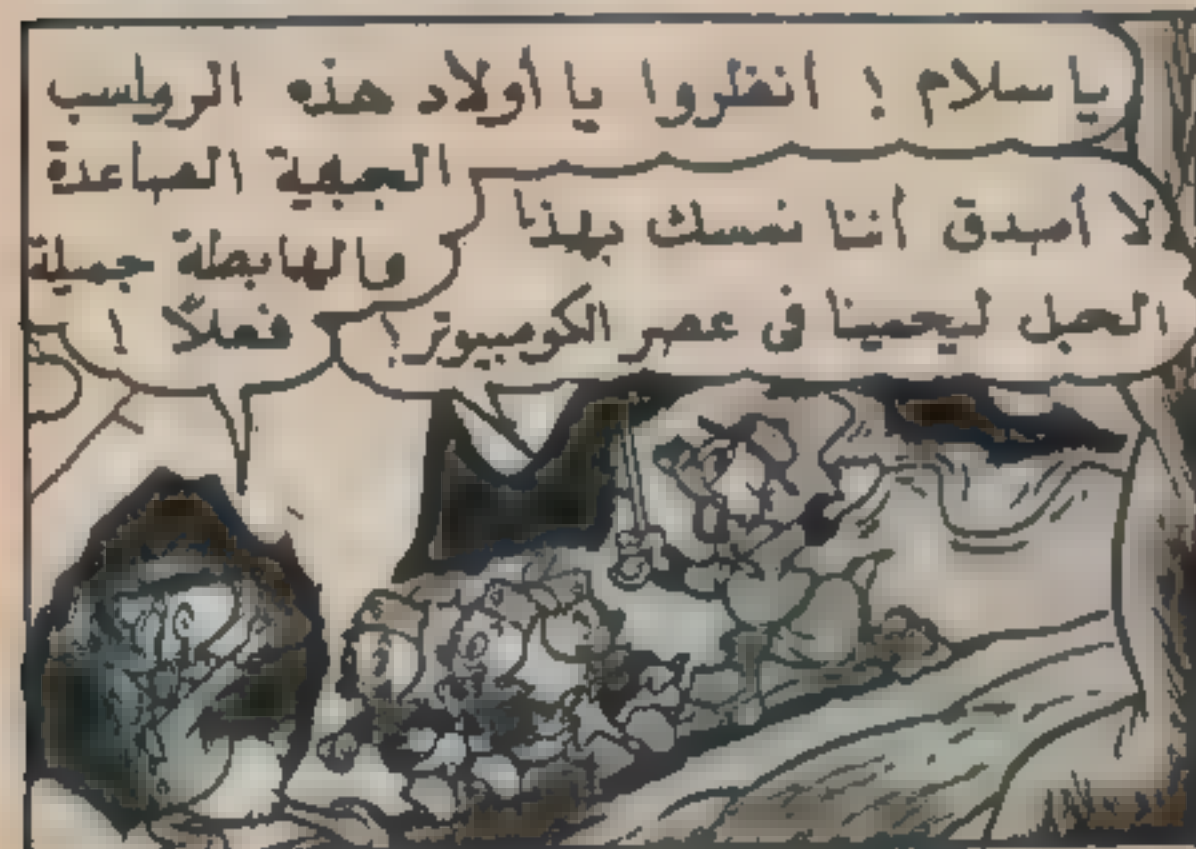 يا سلام ! انظروا يا أولاد هذه الرواسب
الجيفية الصاعدة
والهابطة جميلة
فعلاً !
لا أصدق أننا نمسك بهذا
الحبل ليحمينا فى عصر الكومبيوتر !